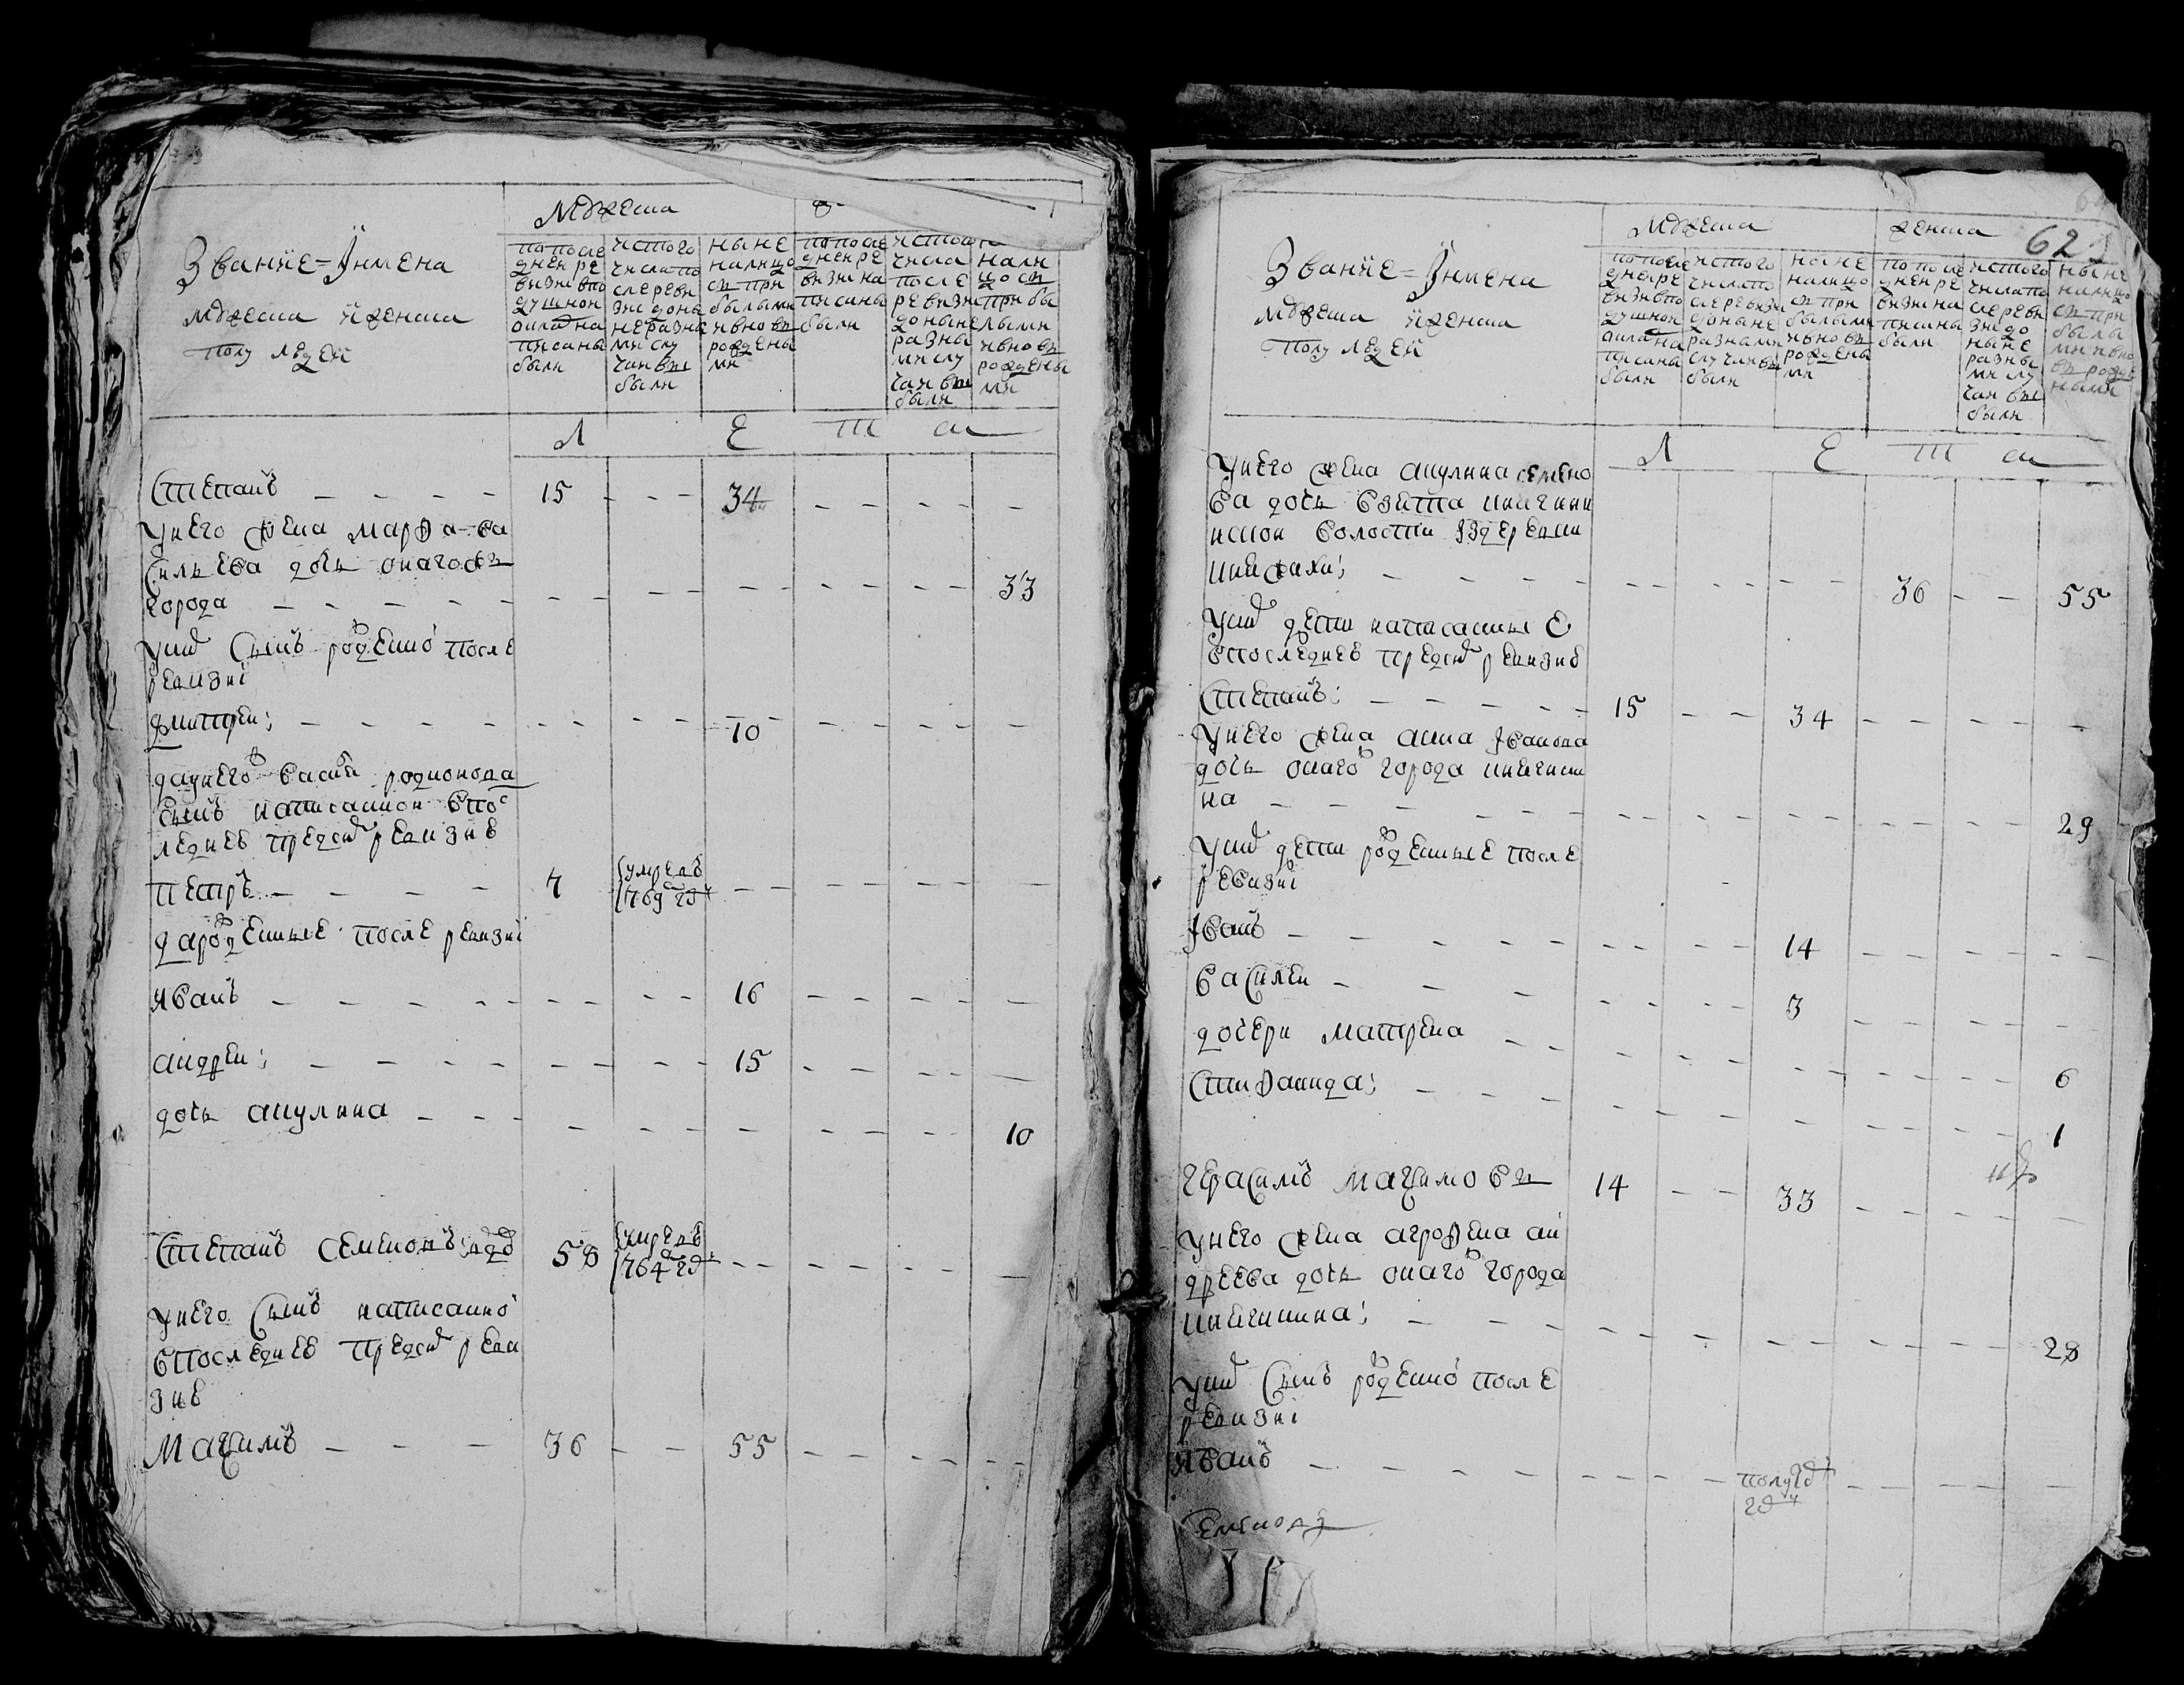 Мужеска
Званїе = Їимена
мужеска їженска
полу людей
по после
дней ре
визиї впо
душной
оклад на
писаны
были
истого
числа по
сле реви
зиї доны
не разны
ми слу
чаи вы
были
ныне
налицо
съ при
былыми
ивнов
рожденны
ми
по после
дней ре
визиї на
писаны
были
истого
числа
после
ревизиї
доныне
разны
ми слу
чаи вы
были
нали
цо съ
при бы
лыми
ивновъ
рожденны
ми
Л Е Т А
Степанъ 15 34
Унего жена марфа ва
сильева дочь онагожъ
города 33
Унихъ сынъ рожденной после
ревизиї
дмитреи; 10
даунего
родионова
сынъ написаннои впос
леднеѣ предъ сего ревизиѣ
петръ 7 умре въ 769 году
дарожденные после ревизиї
иванъ 16
андреи; 15
дочь акулина 10
Степанъ семеновъ 58 умре въ 764 году
Унего сынъ написанной
впоследнеѣ предъ сего реви
зиѣ
Максимъ 36 55
62
Званїе = Їимена
мужеска їженска
полу людей
Мужеска
женска
по после
дней ре
визиї впо
душной
оклад на
писаны
были
истого
числа по
сле ревизиї
доныне
разными
случаи вы
были
ныне
налицо
съ при
былыми
ивновъ
рожденны
ми
по после
дней ре
визиї на
писаны
были
истого
числа по
сле реви
зиї до
ныне
разны
ми слу
чаи вы
были
ныне
налицо
съ при
былы
ми ивно
въ рожде
ными
Л Е Т А
Унего жена акулина семено
ва дочь взята
волости
36 55
Унихъ дети написанные
впоследнеѣ предъ сего ревизиѣ
Степанъ; 15 34
Унего жена анна Иванова
дочь онаго города
на 29
Унихъ дети рожденные после
ревизиї
Иванъ 14
василеи 3
дочери матрена 6
Стифанида; 1
герасимъ максимовъ 14 33
Унего жена агрофена ан
дреева дочь онаго города
28
Унихъ сынъ рожденной после
ревизиї
иванъ полу году